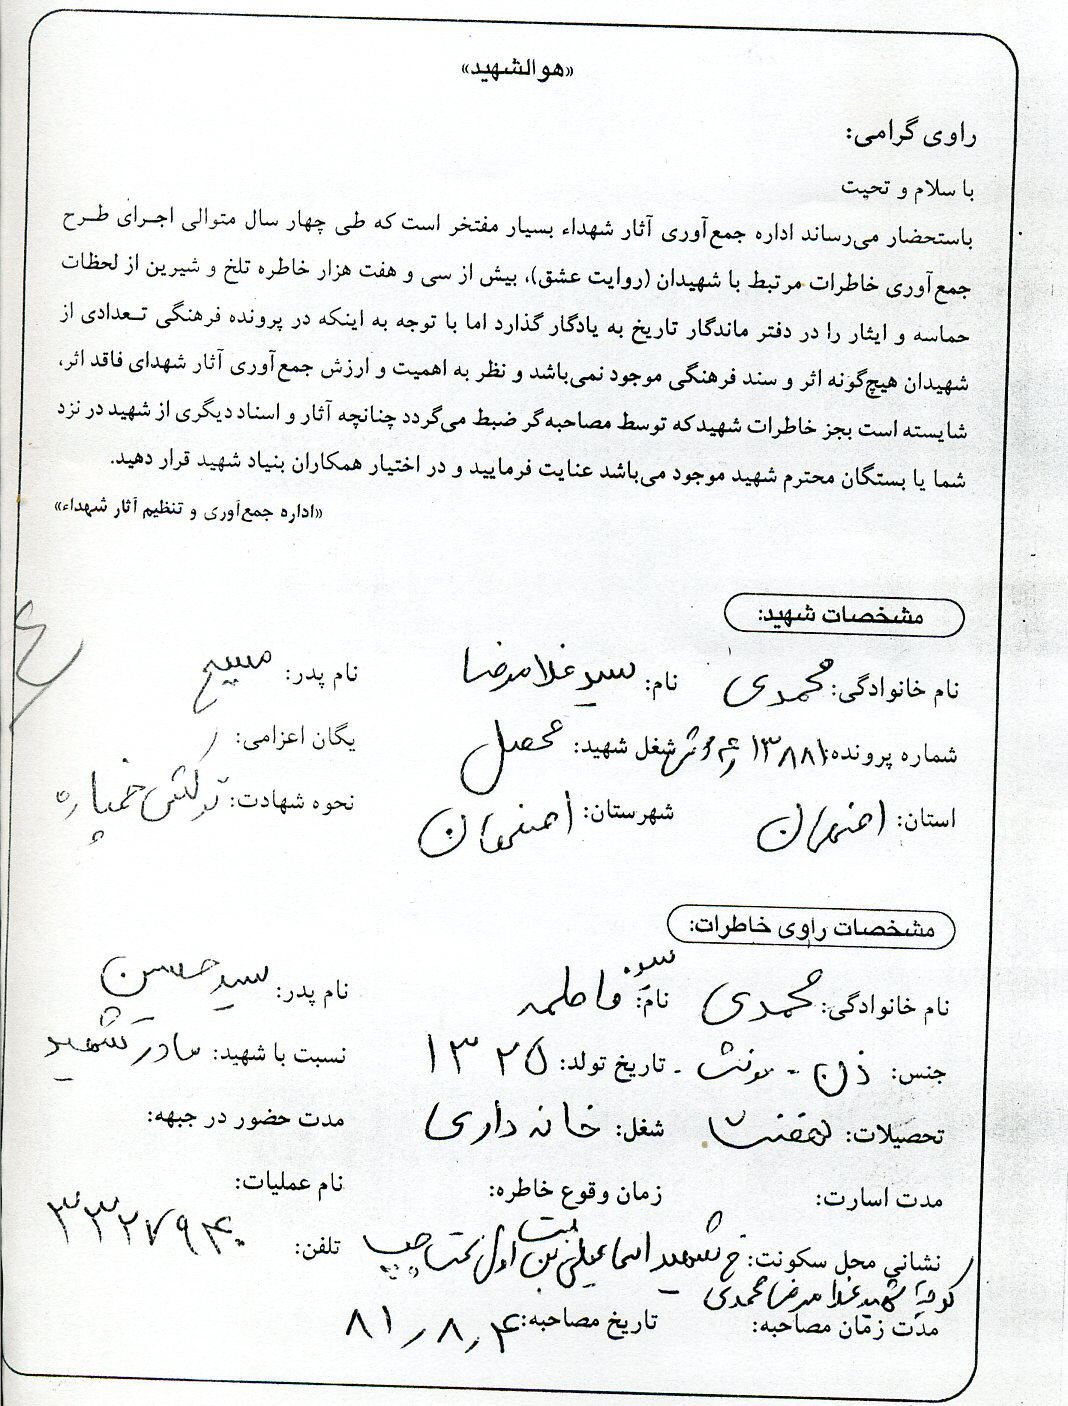 «هوالشهید»
راوی گرامی:
با سلام و تحیت
باستحضار می‌رساند اداره جمع‌آوری آثار شهداء بسیار مفتخر است که طی چهار سال متوالی اجرای طرح
جمع‌آوری خاطرات مرتبط با شهیدان (روایت عشق)، بیش از سی و هفت هزار خاطره تلخ و شیرین از لحظات
حماسه و ایثار را در دفتر ماندگار تاریخ به یادگار گذارد اما با توجه به اینکه در پرونده فرهنگی تعدادی از
شهیدان هیچ‌گونه اثر و سند فرهنگی موجود نمی‌باشد و نظر به اهمیت و ارزش جمع‌آوری آثار شهدای فاقد اثر،
شایسته است بجز خاطرات شهید که توسط مصاحبه‌گر ضبط می‌گردد چنانچه آثار و اسناد دیگری از شهید در نزد
شما یا بستگان محترم شهید موجود می‌باشد عنایت فرمایید و در اختیار همکاران بنیاد شهید قرار دهید.
«اداره جمع‌آوری و تنظیم آثار شهداء»
مشخصات شهید:
نام خانوادگی: محمدی نام: سید غلامرضا نام پدر: مسیح
شماره پرونده: ۱۳۸۸۱ شغل شهید: محصل یگان اعزامی:
استان: اصفهان شهرستان: اصفهان نحوه شهادت: ترکش خمپاره
مشخصات راوی خاطرات:
نام خانوادگی: محمدی نام: فاطمه نام پدر: سید حسین
جنس: زن - مونث - تاریخ تولد: ۱۳۲۵ نسبت با شهید: مادر شهید
تحصیلات: نهضت شغل: خانه داری مدت حضور در جبهه:
مدت اسارت: زمان وقوع خاطره: نام عملیات:
نشانی محل سکونت: خ شهید اسماعیلی بن بست اول سمت چپ تلفن: ۳۳۲۷۹۴۰
کوچه شهید غلامرضا محمدی
مدت زمان مصاحبه: تاریخ مصاحبه: ۸۱٫۸٫۴